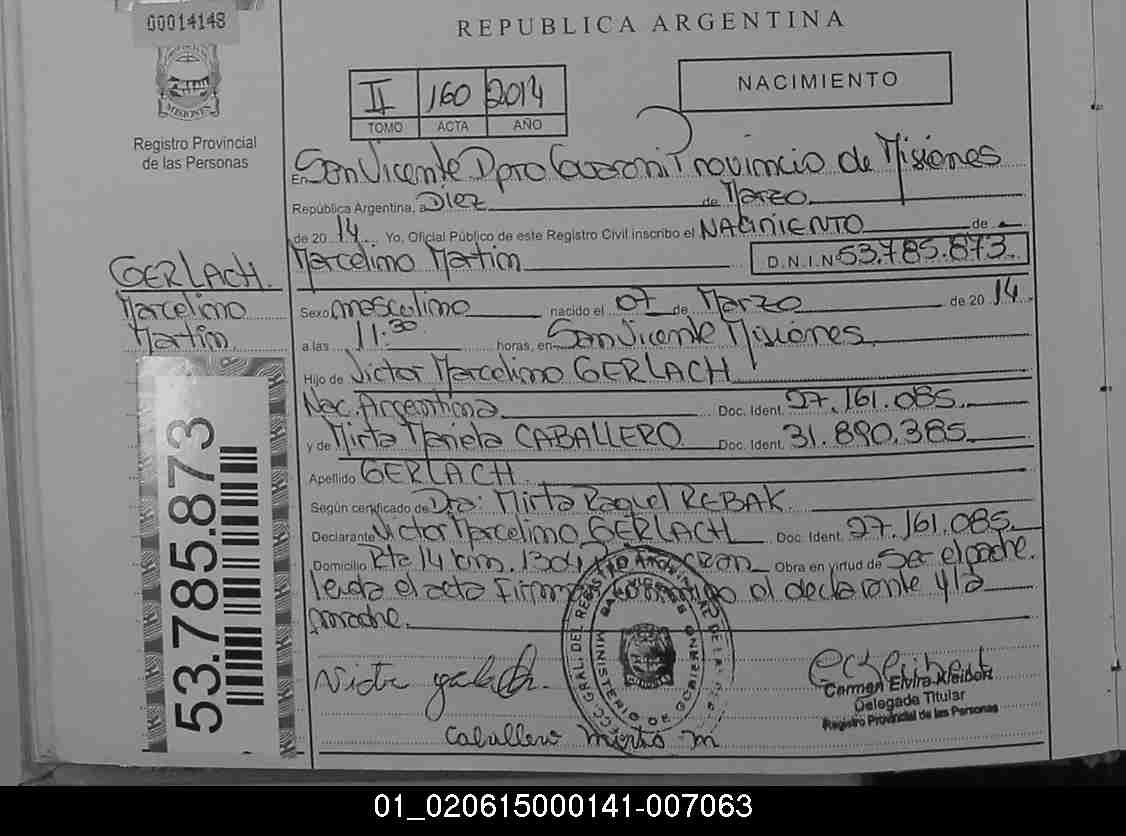 00014148
MISIONES
Registro Provincial
de las Personas
REPUBLICA ARGENTINA
II 160 2014
TOMO ACTA AÑO
NACIMIENTO
En San Vicente Dpto Guarani Provincia de Misiones
República Argentina, a Diez de Marzo
de 20 14 Yo, Oficial Público de este Registro Civil inscribo el NACIMIENTO de
Marcelino Martin D.N.I.N 53.785.873
GERLACH
Marcelino
Martin
Sexo masculino nacido el 07 de Marzo de 20 14
a las 11.30 horas, en San Vicente Misiones
Hijo de Victor Marcelino GERLACH
Nac. Argentina Doc. Ident. 27.161.085
y de Mirta Mariela CABALLERO Doc. Ident. 31.890.385
Apellido GERLACH
Según certificado de Dra: Mirta Raquel REBAK
Declarante Victor Marcelino GERLACH Doc. Ident. 27.161.085
Domicilio Rta 14 km. 1304 Obra en virtud de Ser el padre.
leida el acta Firma conmigo el declarante y la
madre.
53.785.873
Caballero Mirta M
Carmen Elvira
Delegada Titular
Registro Provincial de las Personas
01_020615000141-007063